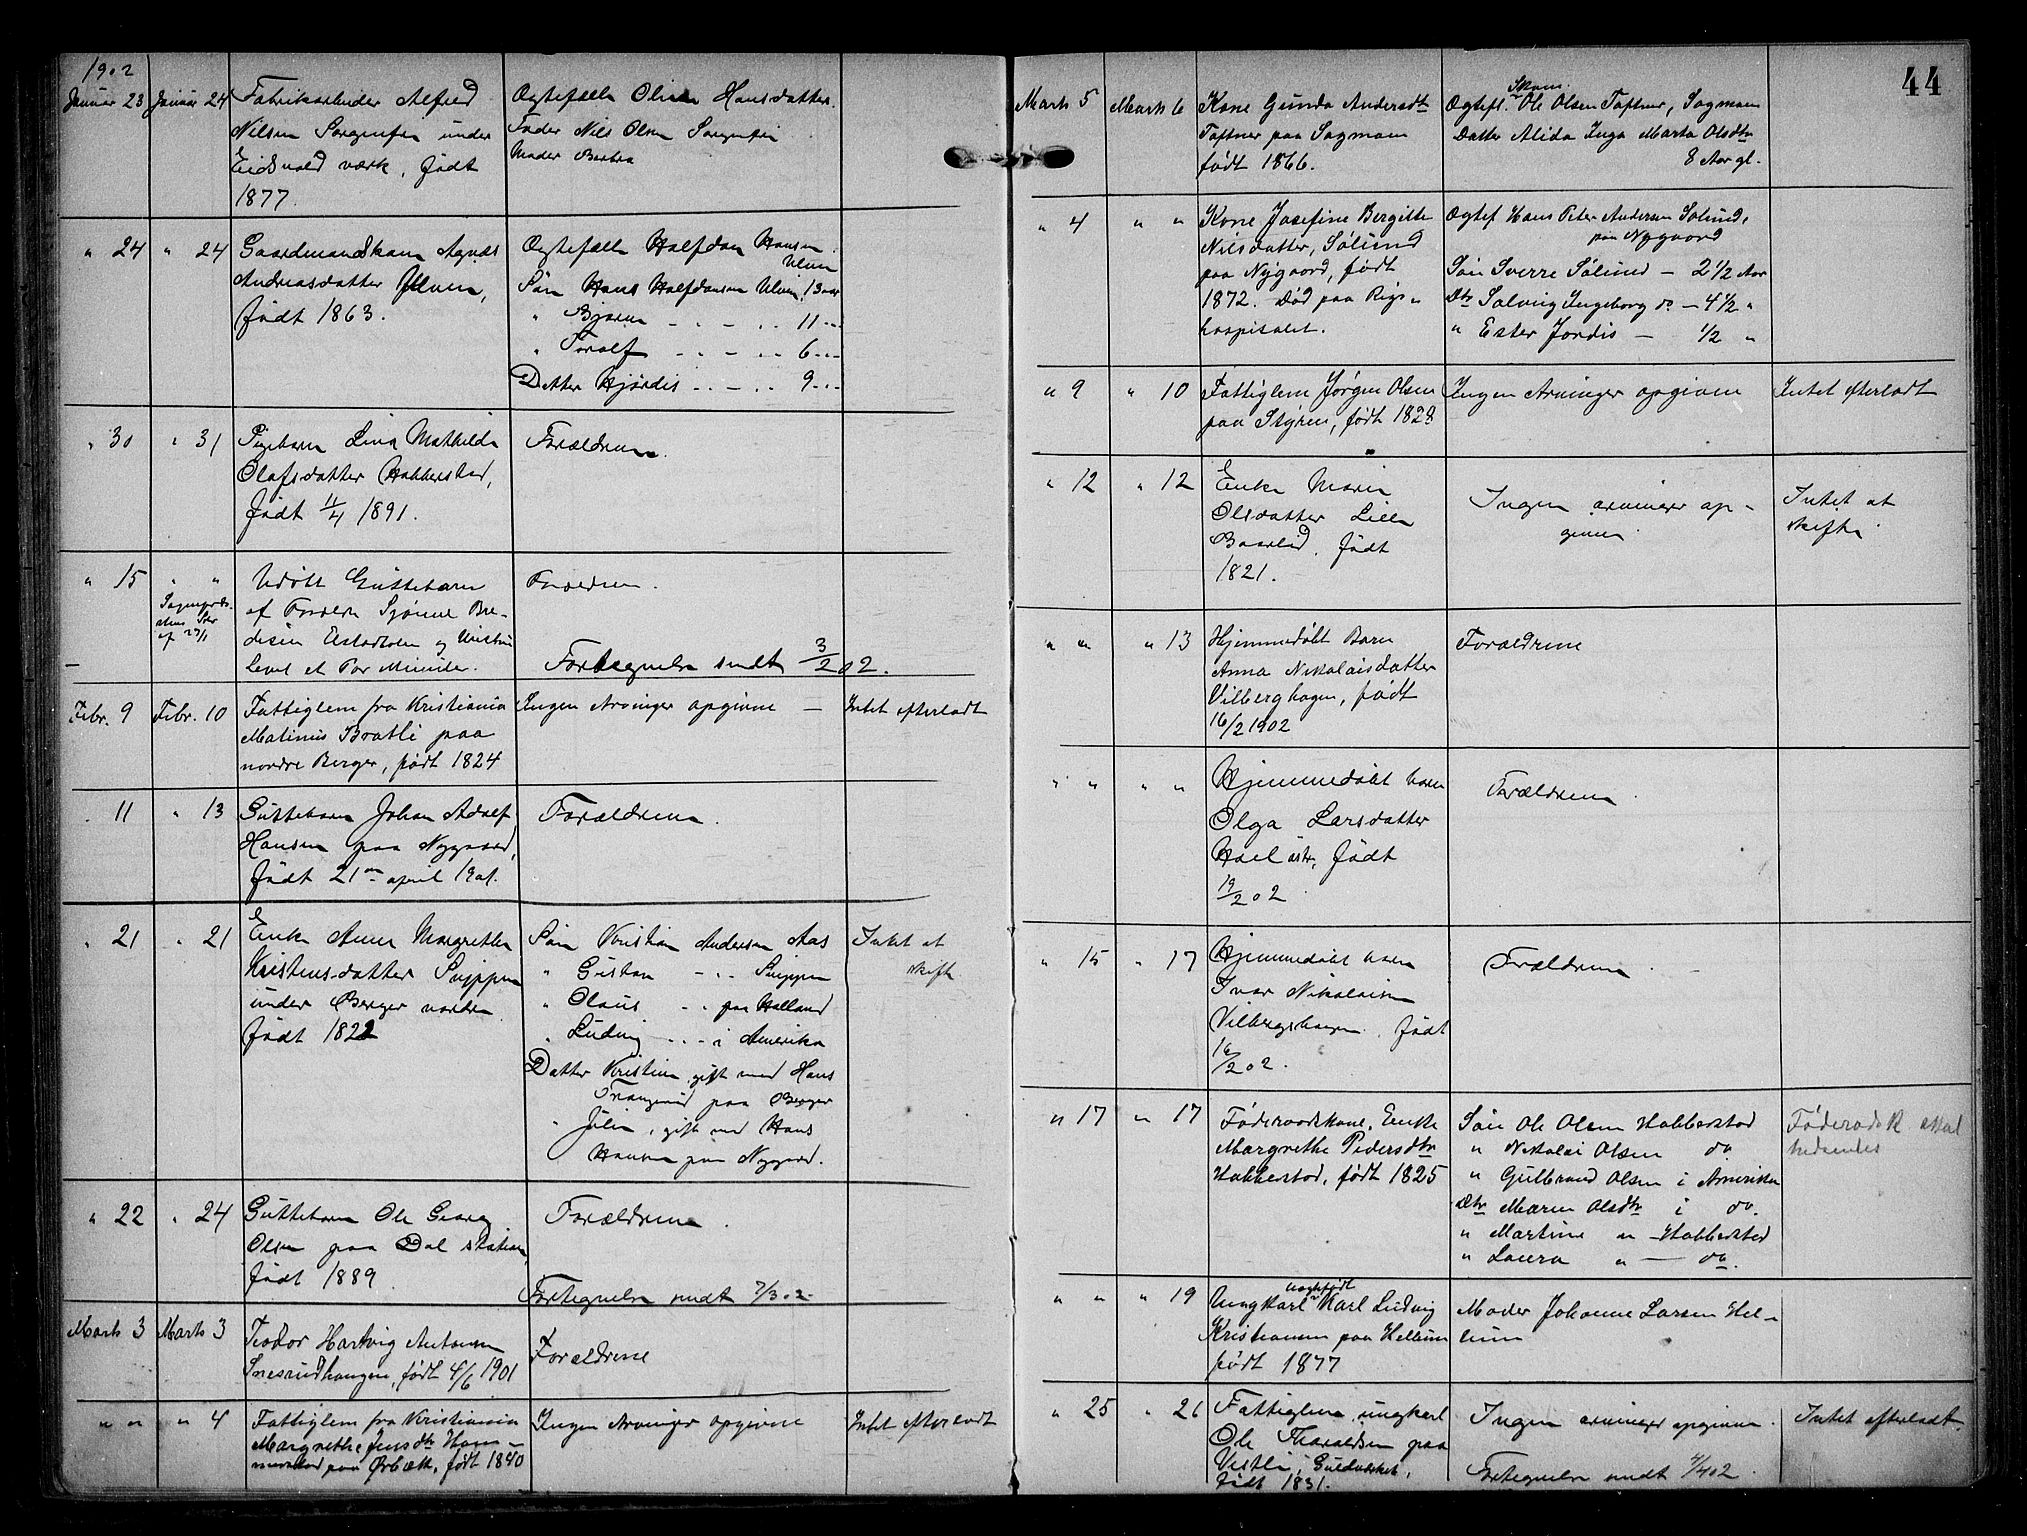 1902
Januar 23 Januar 24 Fabrikarbeider Alfred Ægtefælle Hansdatter.
Nilsen Sorgenfri under Fader Nils Olsen Sorgenfri
Eidsvold værk, født Moder
1877.
" 24 " 24 Gaardmandskone Agnes Ægtefælle Halfdan Hansen
Andreasdatter Ulven, Ulven
født 1863. Søn Hans Halfdansen Ulven, 13 aar
" Bjarne - - 11 "
" Toralf - - 6 "
Datter Hjørdis - - 9 "
" 30 " 31 Pigebarn Lina Mathilde Forældrene.
Olafsdatter Habberstad,
født 11/4 1891.
" 15 " " Udøbt Guttebarn Forældrene.
af Forældre Bre-
og
Levet et Par Minuter. Fortegnelse sendt 3/2 02.
Febr. 9 Febr. 10 Fattiglem fra Kristiania Ingen Arvinger opgivne - Intet efterladt
Matinus Bratli paa
nordre Berger, født 1824
" 11 " 13 Guttebarn Johan Adolf Forældrene.
Hansen paa Nygaard,
født 21de april 1901.
" 21 " 21 Enke Anne Margrethe Søn Kristian Andersen Aas Intet at
Kristensdatter " Gustav - " skifte
under Berger nordre " Claus - " paa Holland
født 1822 " Ludvig - " i Amerika
Datter Kristine, gift med Hans
paa Berger
" Julie, gift med Hans
Hansen paa Nygaard.
" 22 " 24 Guttebarn Ole Georg Forældrene.
Olsen paa Dal station,
født 1889. Fortegnelse sendt 7/3 02.
Marts 3 Marts 3 Teodor Hartvig Antonsen Forældrene
Snesrudhaugen, født 4/6 1901
" " " 4 Fattiglem fra Kristiania Ingen Arvinger opgivne Intet efterladt
Margrethe Jensdtr
paa Ørbæk, født 1840
44
Marts 5 Marts 6 Kone Gunda Andersdtr Ægtef. Skom. Ole Olsen Taftner, Sagmoen
Taftner paa Sagmoen Datter Alida Inga Marta Olsdtr
født 1866. 8 Aar gl.
" 4 " " Kone Josefine Bergitte Ægtef Hans Peter Andersen Sølund,
Nilsdatter, Sølund paa Nygaard
paa Nygaard, født Søn Sverre Sølund - 2 1/2 Aar
1872. Død paa Rigs- Dtr Solveig Ingeborg do - 4 1/2 "
hospitalet. " Ester Jordis - 1/2 "
" 9 " 10 Fattiglem Jørgen Olsen Ingen Arvinger opgivne Intet efterladt
paa Styren, født 1828
" 12 " 12 Enke Maria Ingen arvinger op- Intet at
Olsdatter Lille givne skifte.
født
1821.
" " " 13 Hjemmedøbt Barn Forældrene
Anna Nikolaisdatter
Vilberghagen, født
16/2 1902
" " " " Hjemmedøbt barn Forældrene.
Olga Larsdatter
født
19/2 02.
" 15 " 17 Hjemmedøbt barn Forældrene.
Ivar Nikolaisen
Vilberghagen. født
16/2 02.
" 17 " 17 Føderaadskone, Enke Søn Ole Olsen Habberstad Føderadsk. skal
Margrethe Pedersdtr " Nikolai Olsen do nedsendes
Habberstad, født 1825 " Gulbrand Olsen i Amerika
Dtr Maren Olsdtr i do.
" Martine " - Habberstad
" Laura " - do.
" " " 19 Ungkarl Karl Ludvig Moder Johanne Larsen Hel-
Kristiansen paa Hellum lum
født 1877
" 25 " 26 Fattiglem, ungkarl Ingen arvinger opgivne. Intet efterladt.
Ole Tharaldsen paa
Vestli, Fortegnelse sendt 4/4 02.
født 1831.